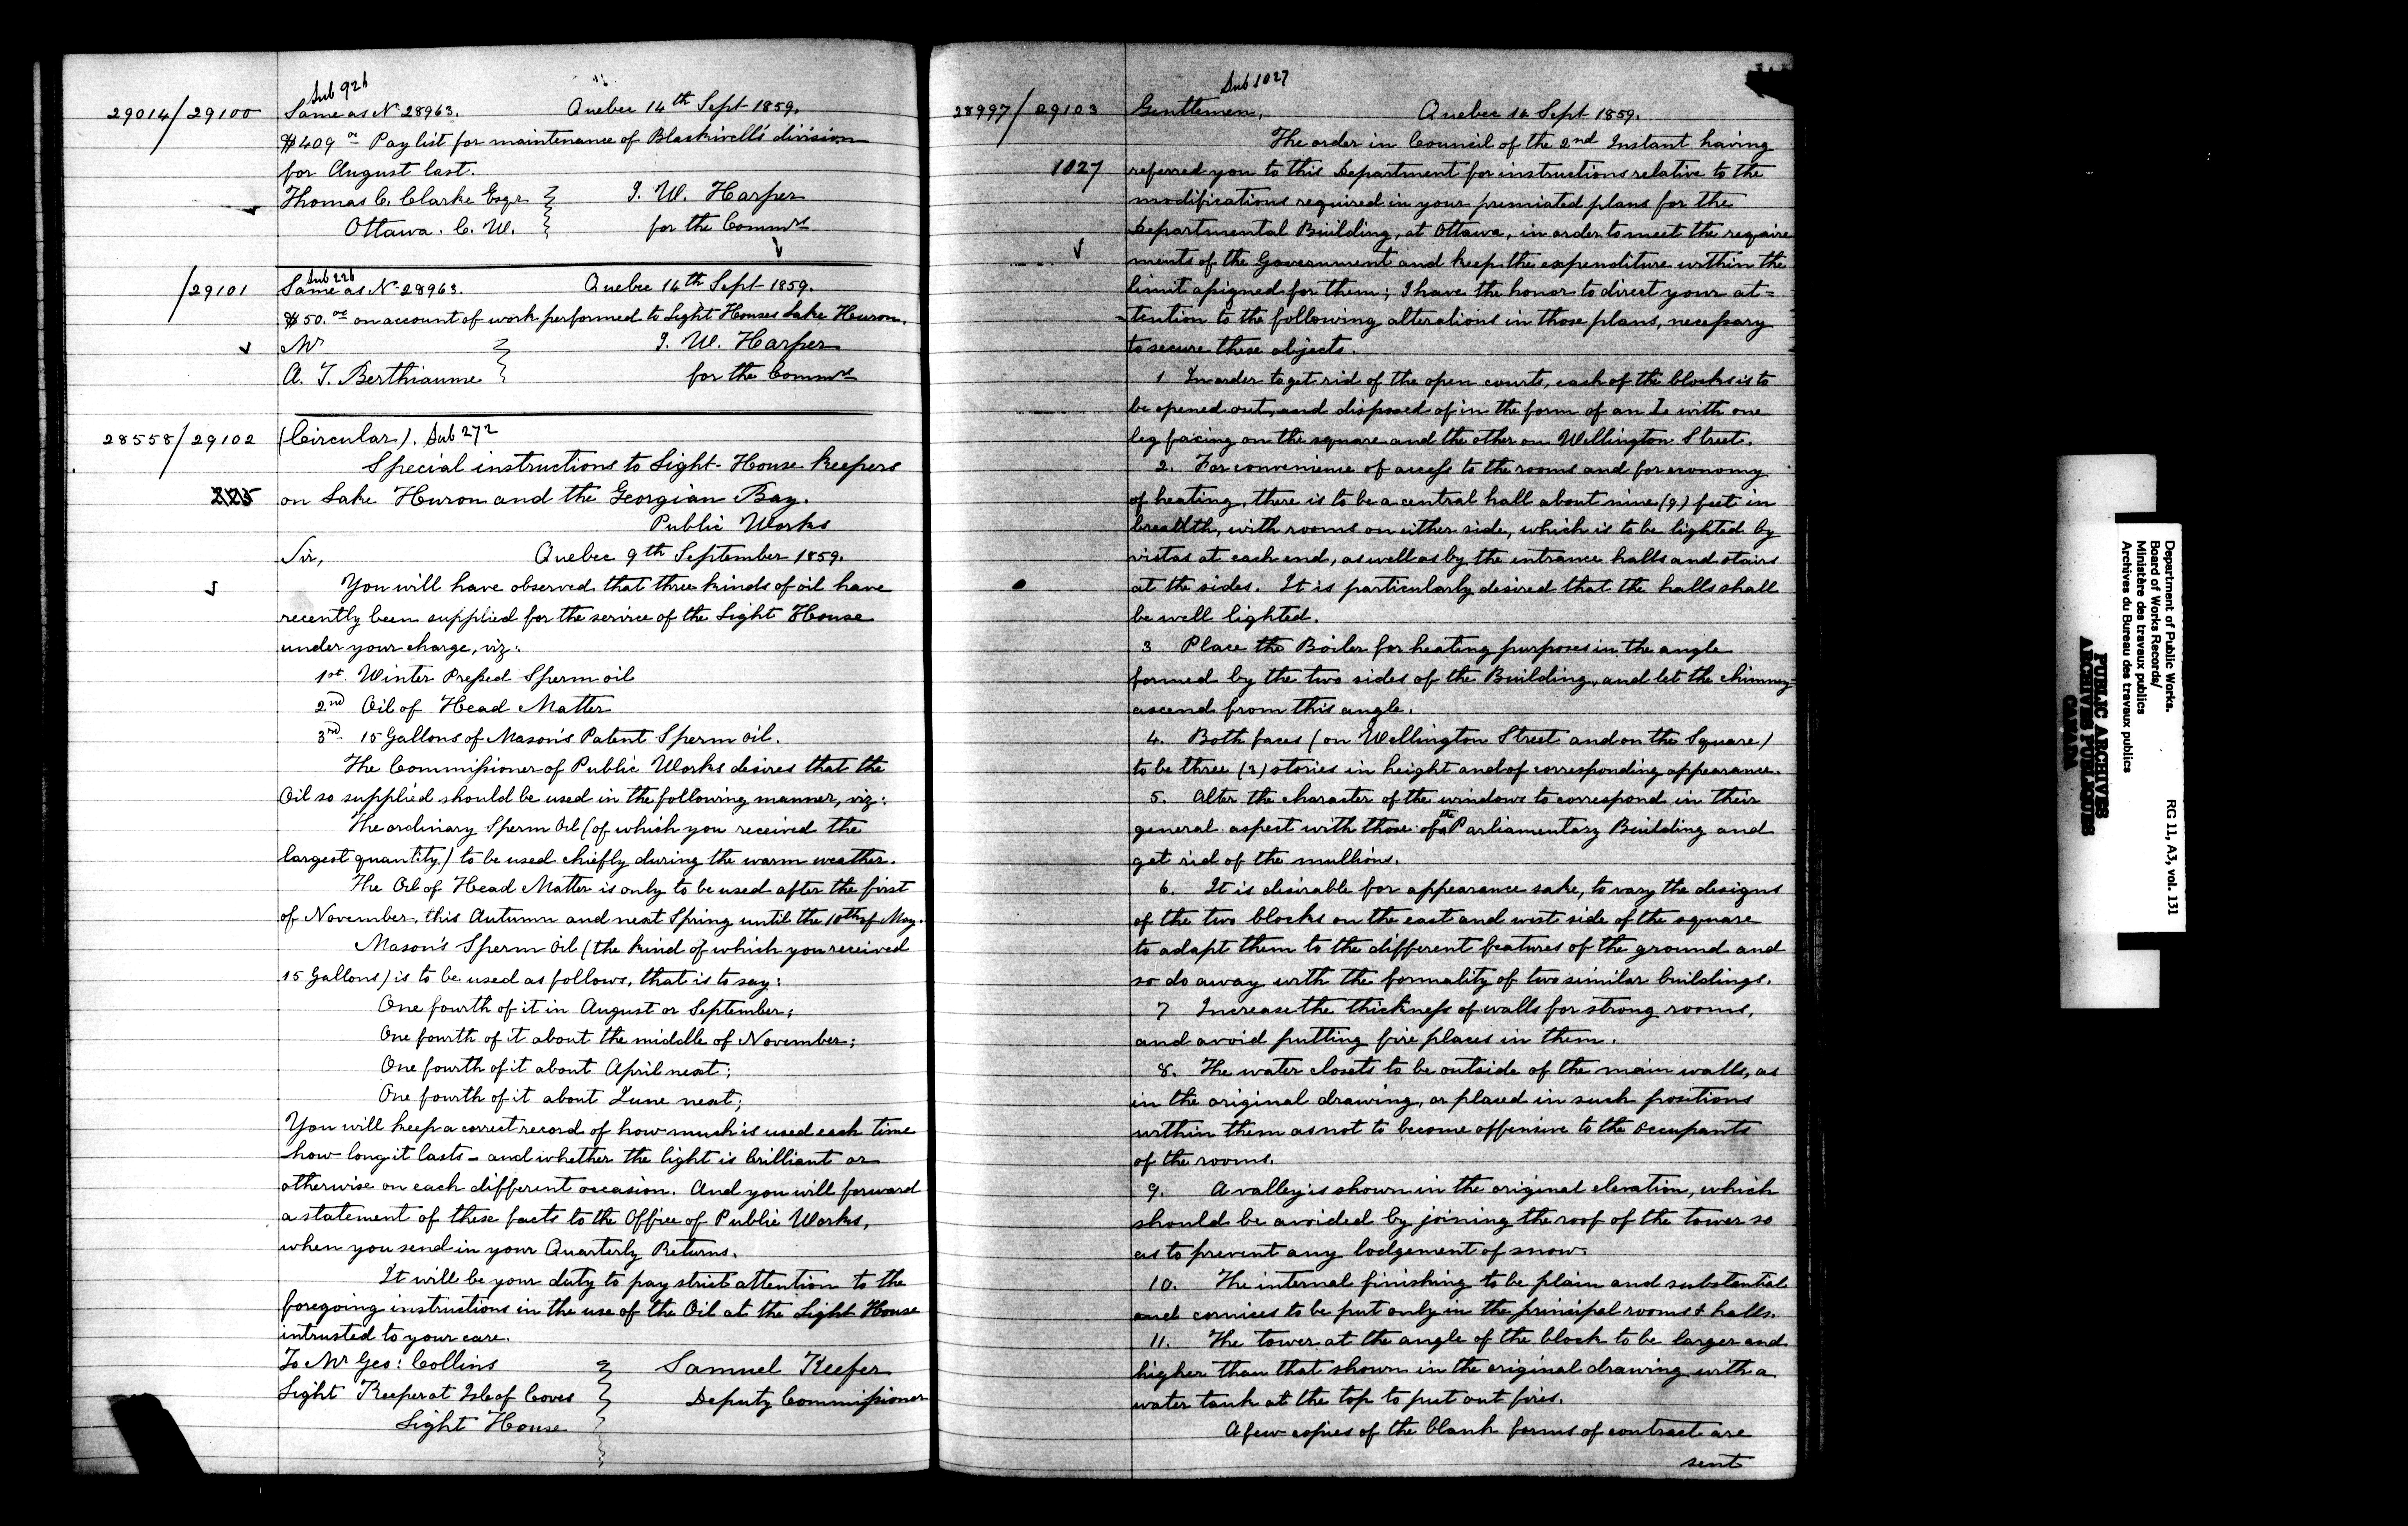 Sub 926
29014/29100 Same as No 28963. Quebec 14th Sept 1859.
$409 00 Pay list for maintenance of Blackwell's division
for August last.
Thomas C. Clarke Esqr J. W. Harper
Ottawa. C. W. for the Commrs
Sub 226
/29101 Same as No 28963. Quebec 14th Sept 1859.
$50.00 on account of work performed to Light Houses Lake Huron.
Mr J. W. Harper
A. T. Berthiaume for the Commrs
28558/29102 (Circular). Sub 272
Special instructions to Light-House Keepers
on Lake Huron and the Georgian Bay.
Public Works
Sir, Quebec 9th September 1859.
You will have observed that three kinds of oil have
recently been supplied for the service of the Light House
under your charge, viz:
1st Winter Pressed Sperm oil
2nd Oil of Head Matter
3rd 15 Gallons of Mason's Patent Sperm oil.
The Commissioner of Public Works desires that the
Oil so supplied should be used in the following manner, viz:
The ordinary Sperm Oil (of which you received the
largest quantity) to be used chiefly during the warm weather.
The Oil of Head Matter is only to be used after the first
of November, this Autumn and next Spring until the 10th of May.
Mason's Sperm Oil (the kind of which you received
15 Gallons) is to be used as follows, that is to say:
One fourth of it in August or September;
One fourth of it about the middle of November;
One fourth of it about April next;
One fourth of it about June next;
You will keep a correct record of how much is used each time
how long it lasts - and whether the light is brilliant or
otherwise on each different occasion. And you will forward
a statement of these facts to the Office of Public Works,
when you send in your Quarterly Returns.
It will be your duty to pay strict attention to the
foregoing instructions in the use of the Oil at the Light House
intrusted to your care.
To Mr Geo: Collins Samuel Keefer
Light Keeper at Isle of Coves Deputy Commissioner
Light House
Sub 1027
28997/29103 Gentlemen, Quebec 14 Sept 1859.
The order in Council of the 2nd Instant having
1027 referred you to this Department for instructions relative to the
modifications required in your premiated plans for the
Departmental Building, at Ottawa, in order to meet the require
ments of the Government and keep the expenditure within the
limit assigned for them; I have the honor to direct your at=
-tention to the following alterations in those plans, necessary
to secure these objects.
1 In order to get rid of the open courts, each of the blocks is to
be opened out, and disposed of in the form of an L with one
leg facing on the square and the other on Wellington Street.
2. For convenience of access to the rooms and for economy
of heating, there is to be a central hall about nine (9) feet in
breadth, with rooms on either side, which is to be lighted by
vistas at each end, as well as by the entrance halls and stairs
at the sides. It is particularly desired that the halls shall
be well lighted.
3 Place the Boiler for heating purposes in the angle
formed by the two sides of the Building, and let the chimney
ascend from this angle.
4. Both faces (on Wellington Street and on the Square)
to be three (3) stories in height and of corresponding appearance.
5. Alter the character of the windows to correspond in their
general aspect with those of the Parliamentary Building and
get rid of the mullions.
6. It is desirable for appearance sake, to vary the designs
of the two blocks on the east and west side of the square
to adapt them to the different features of the ground and
so do away with the formality of two similar buildings.
7 Increase the thickness of walls for strong rooms,
and avoid putting fire places in them.
8. The water closets to be outside of the main walls, as
in the original drawing, or placed in such positions
within them as not to become offensive to the occupants
of the rooms.
9. A valley is shown in the original elevation, which
should be avoided by joining the roof of the tower so
as to prevent any lodgement of snow.
10. The internal finishing to be plain and substantial
and cornices to be put only in the principal rooms & halls.
11. The tower at the angle of the block to be larger and
higher than that shown in the original drawing with a
water tank at the top to put out fires.
A few copies of the blank forms of contract are
sent
Department of Public Works.
Board of Works Records/
Ministère des travaux publics
Archives du Bureau des travaux publics
RG 11, A3, vol. 131
PUBLIC ARCHIVES
ARCHIVES PUBLIQUES
CANADA